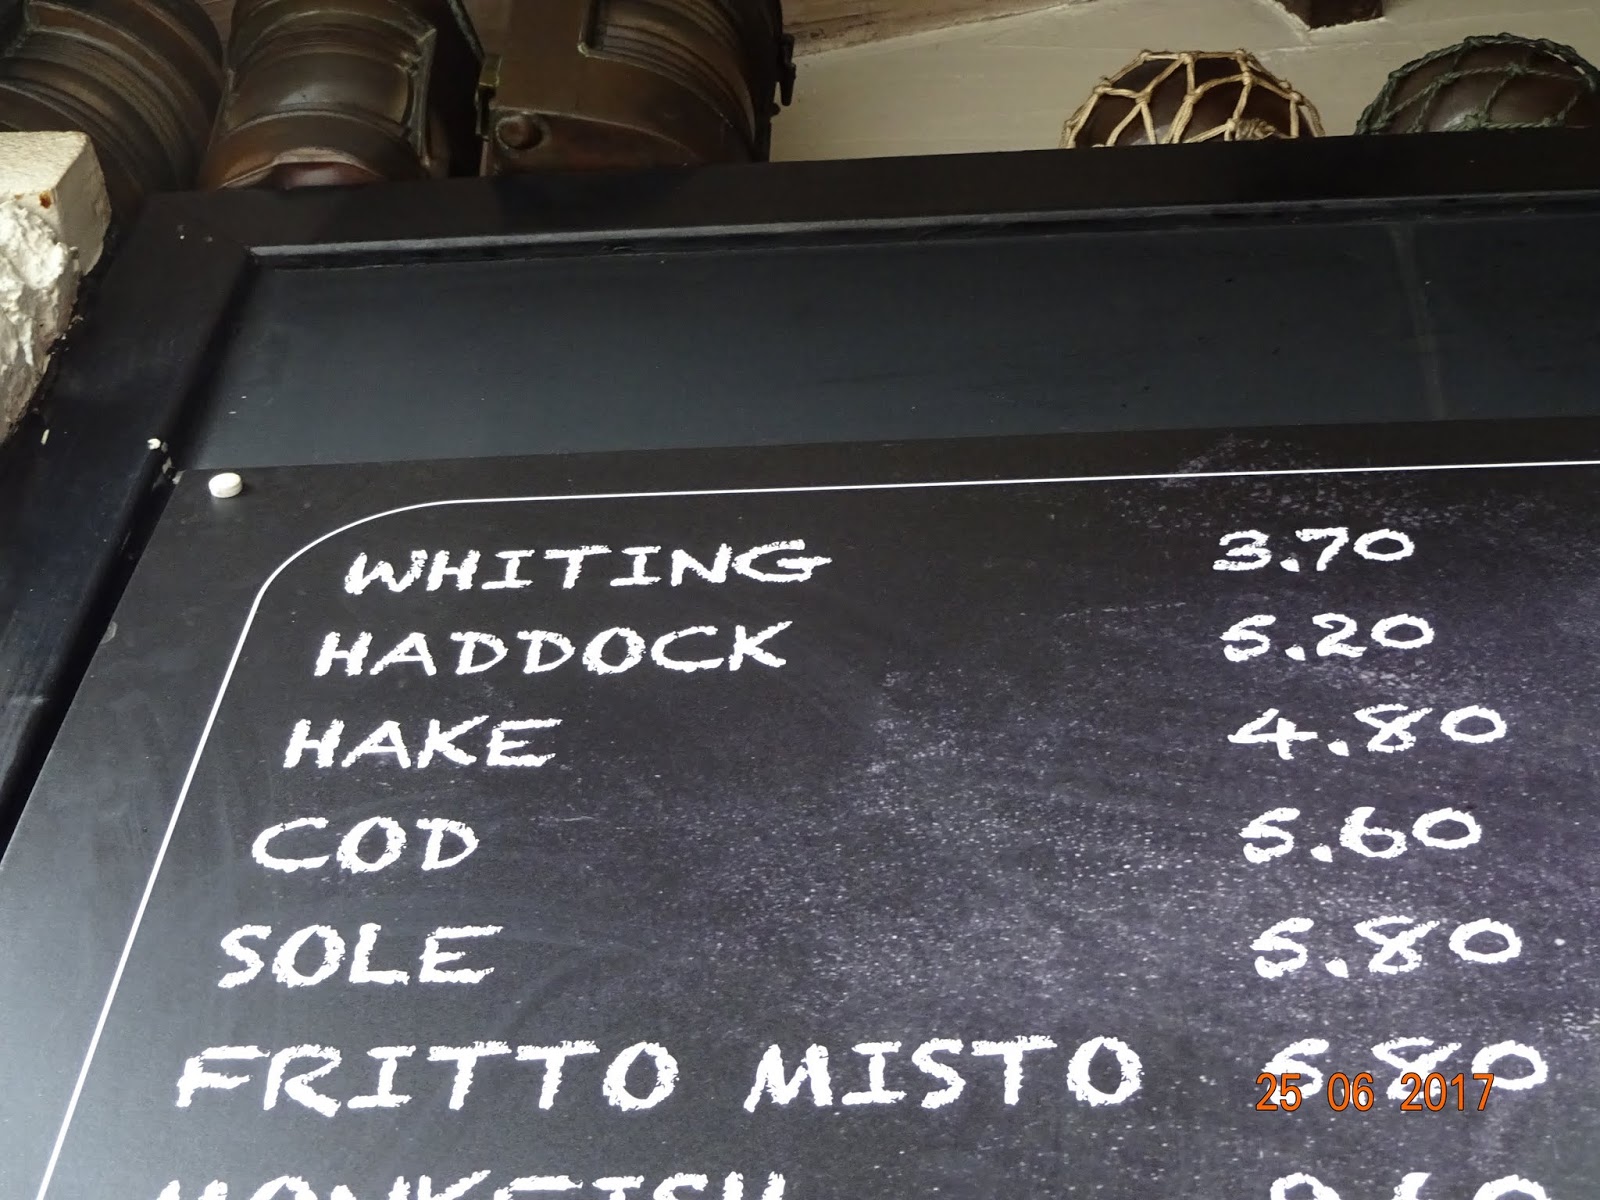 WHITING 3.70
HADDOCK 5.20
HAKE 4.80
COD 5.60
SOLE 5.80
FRITTO MISTO
25 06 2017
MONKFISH